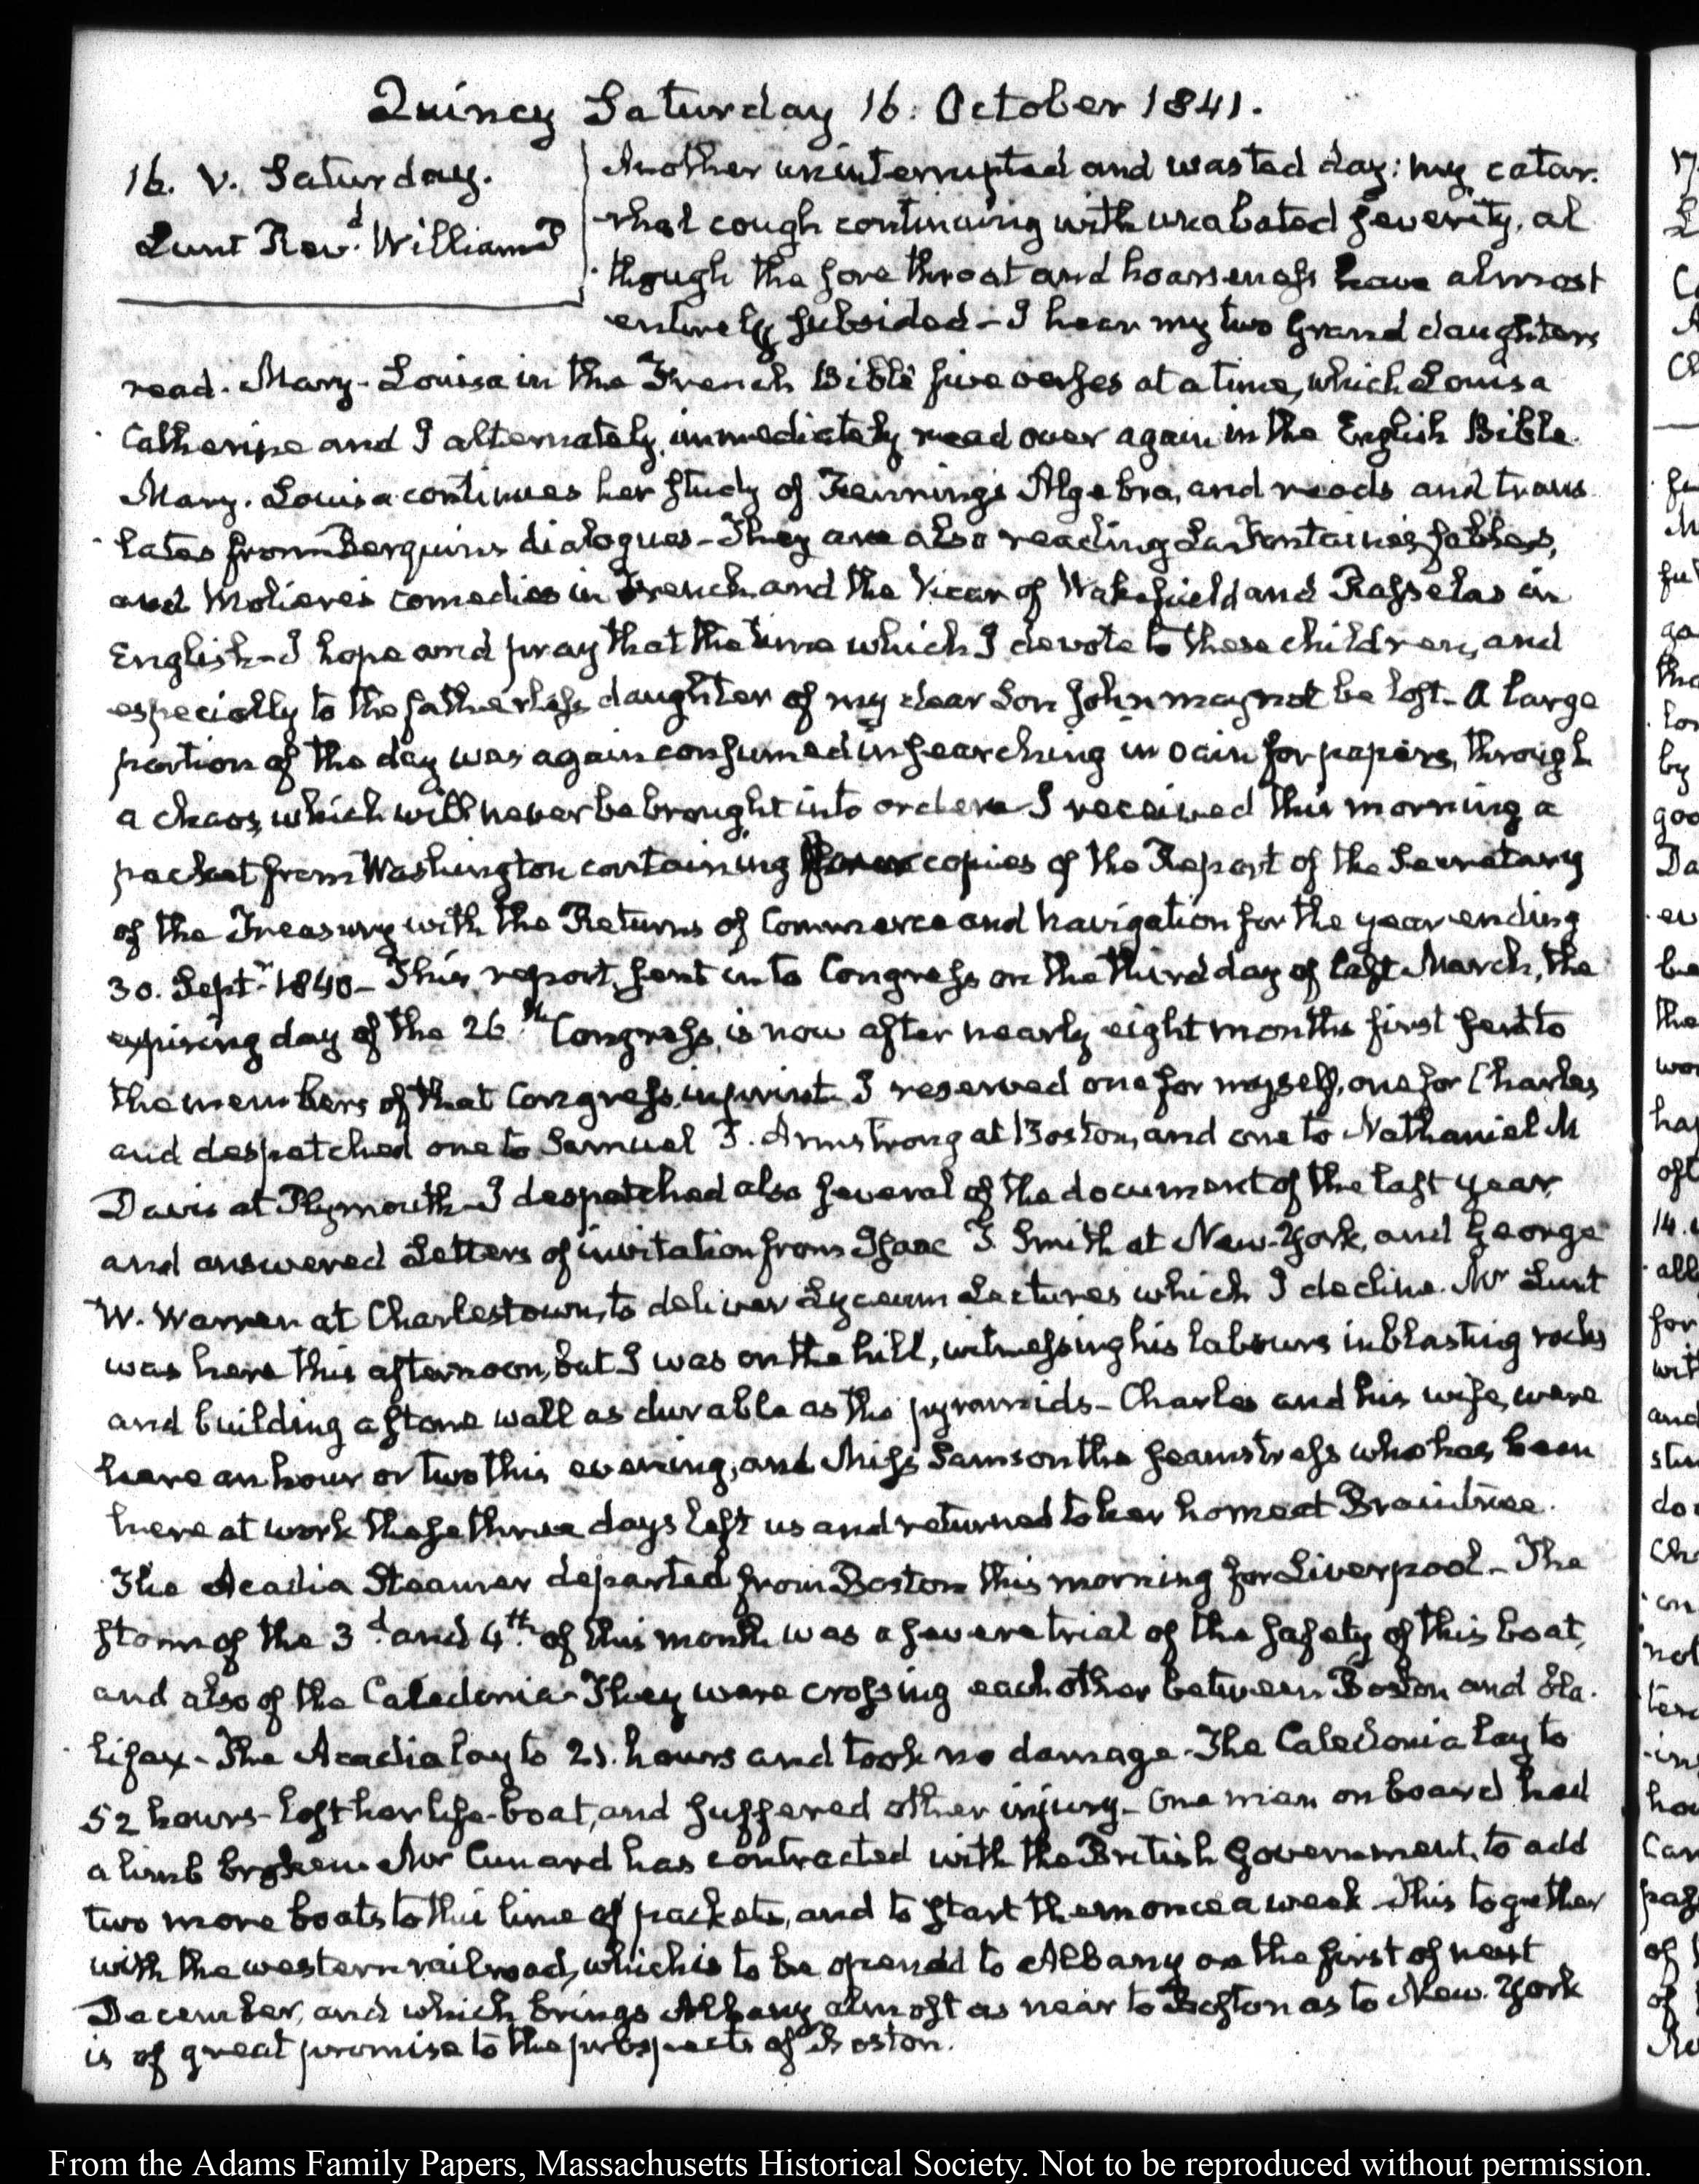 Quincy Saturday 16. October 1841.
16. V. Saturday.
Lunt Revd. William P
Another uninterrupted and wasted day: my catar-
rhal cough continuing with unabated severity, al
though the sore throat and hoarseness have almost
entirely subsided – I hear my two Grand daughters
read. Mary-Louisa in the French Bible five verses at a time, which Louisa
Catherine and I alternately, immediately read over again in the English Bible.
Mary-Louisa continues her study of Jennings's Algebra, and reads and trans
lates from Berquin's dialogues – They are also reading La Fontaine's fables,
and Moliere's comedies in French and the Vicar of Wakefield and Rasselas in
English – I hope and pray that the time which I devote to these children, and
especially to the fatherless daughter of my dear Son John may not be lost – A large
portion of the day was again consumed in searching in vain for papers, through
a chaos, which will never be brought into order – I received this morning a
packet from Washington containing copies of the Report of the Secretary
of the Treasury with the Returns of Commerce and Navigation for the year ending
30. Septr. 1840 – This report, sent in to Congress on the third day of last March, the
expiring day of the 26th. Congress, is now after nearly eight months first sent to
the members of that Congress, in print. I reserved one for myself, one for Charles
and despatched one to Samuel T. Armstrong at Boston, and one to Nathaniel M
Davis at Plymouth – I despatched also several of the document of the last year,
and answered Letters of invitation from Isaac T. Smith at New-York, and George
W. Warren at Charlestown, to deliver Lyceum Lectures which I decline. Mr Lunt
was here this afternoon, but I was on the hill, witnessing his labours in blasting rocks
and building a stone wall as durable as the pyramids – Charles and his wife, were
here an hour or two this evening, and Miss Samson the seamstress who has been
here at work these three days left us and returned to her home at Braintree.
The Acadia Steamer departed from Boston this morning for Liverpool – The
storm of the 3d. and 4th. of this month was a severe trial of the safety of this boat,
and also of the Caledonia – They were crossing each other between Boston and Ha-
lifax – The Acadia lay to 21. hours and took no damage – The Caledonia lay to
52 hours – lost her life-boat, and suffered other injury – One man on board had
a limb broken – Mr Cunard has contracted with the British Government, to add
two more boats to this line of packets, and to start them once a week – This together
with the western railroad, which is to be opened to Albany on the first of next
December, and which brings Albany almost as near to Boston as to New-York
is of great promise to the prospects of Boston.
From the Adams Family Papers, Massachusetts Historical Society. Not to be reproduced without permission.